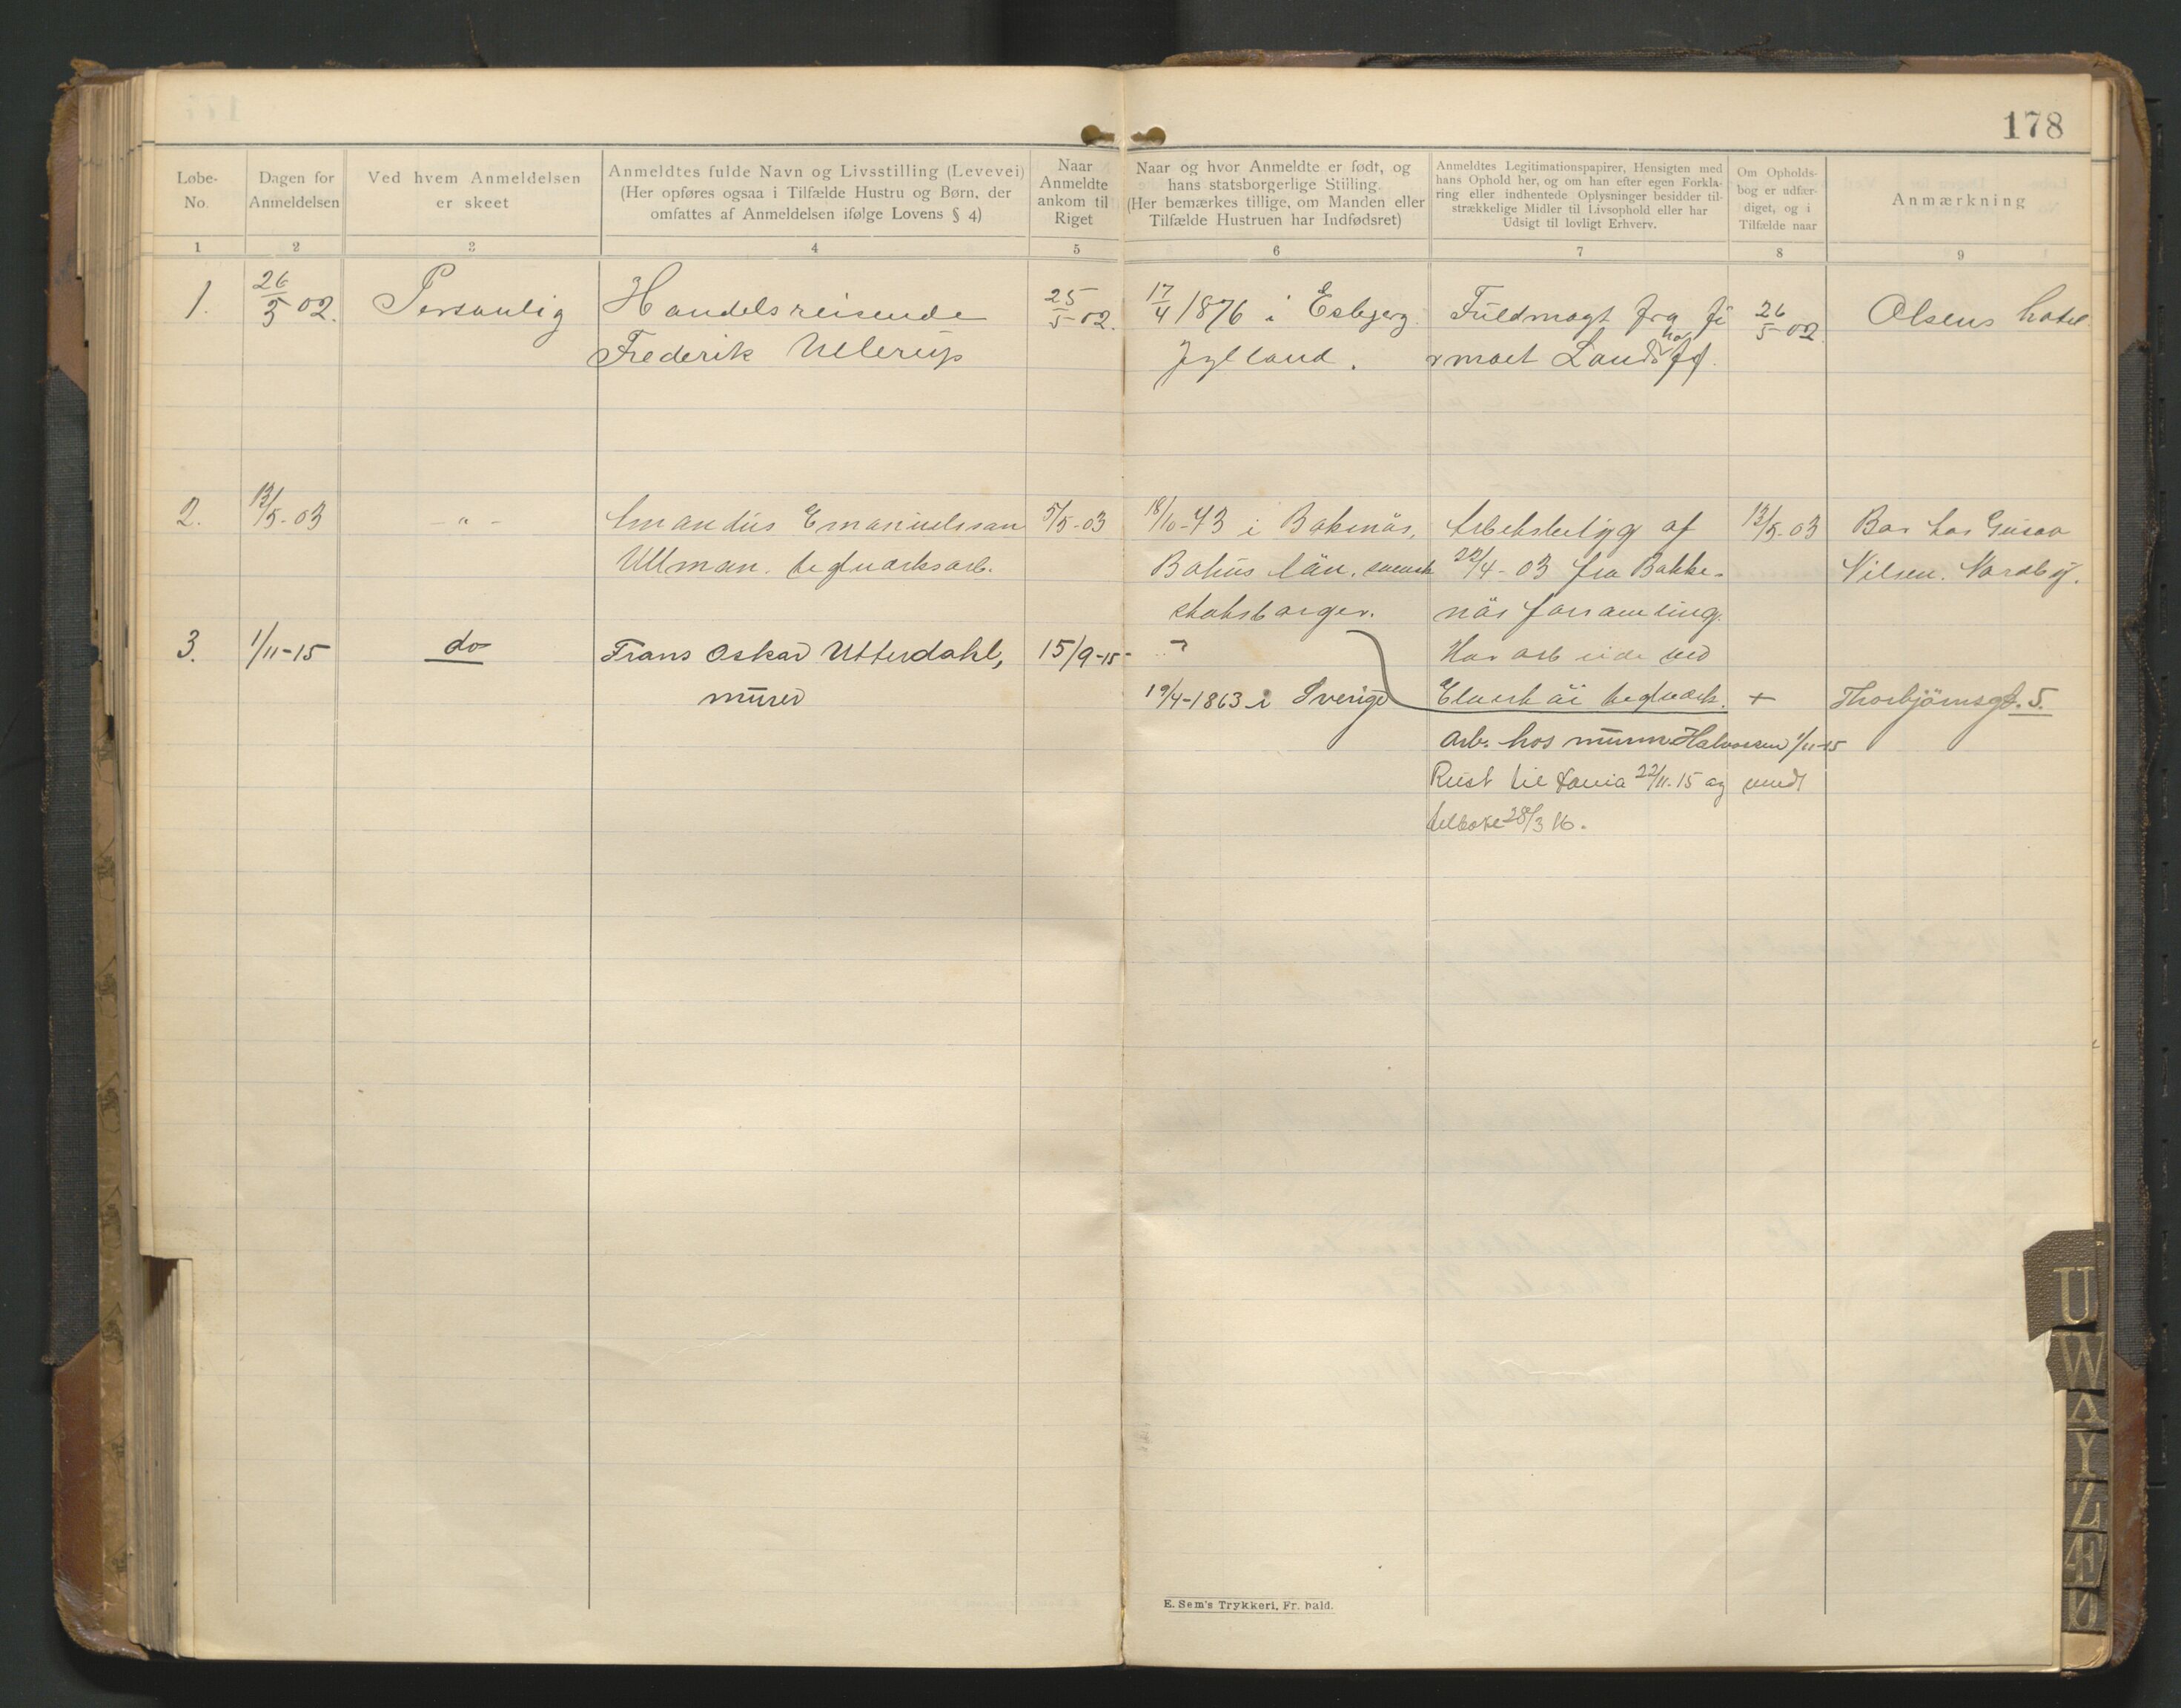 178
Løbe-
No.
Dagen for
Anmeldelsen
Ved hvem Anmeldelsen
er skeet
Anmeldtes fulde Navn og Livsstilling (Levevei)
(Her opføres ogsaa i Tilfælde Hustru og Børn, der
omfattes af Anmeldelsen ifølge Lovens § 4)
Naar
Anmeldte
ankom til
Riget
Naar og hvor Anmeldte er født, og
hans statsborgerlige Stilling.
(Her bemærkes tillige, om Manden eller
Tilfælde Hustruen har Indfødsret)
Anmeldtes Legitimationspapirer, Hensigten med
hans Ophold her, og om han efter egen Forkla-
ring eller indhentede Oplysninger besidder til-
strækkelige Midler til Livsophold eller har
Udsigt til lovligt Erhverv.
Om Opholds-
bog er udfær-
diget, og i
Tilfælde naar
Anmærkning
1 2 3 4 5 6 7 8 9
1. 26/5 02. Personlig Handelsreisende 25/5 02. 17/4 1876 i Esbjerg Fuldmagt fra fi 26/5 02. Olsens hotel
Frederik Ullerup Jylland. rmaet
2. 13/5-03 - " - Emanuelsson 5/5-03 18/10-43 i Bakenäs, Arbeidsbetyg af 13/5-03 Bor hos
Ullman. teglværksarb. Bahus län. svensk 22/4-03 fra Bakke-
Nilsen. Nordby.
statsborger. näs forsamling.
3. 1/11-15 do Frans Oskar Utterdahl, 15/9-15- ? Har arbeide ved
murer 19/4-1863 i Sverige teglværk. + Thorbjörnsgt. 5.
Arb. hos murm. Halvorsen 1/11-15
Reist til 22/11-15 og vendt
tilbake 28/3 16.
E. Sem's Trykkeri, Fr.hald.
U
W
X
Y
Z
Æ
Ø